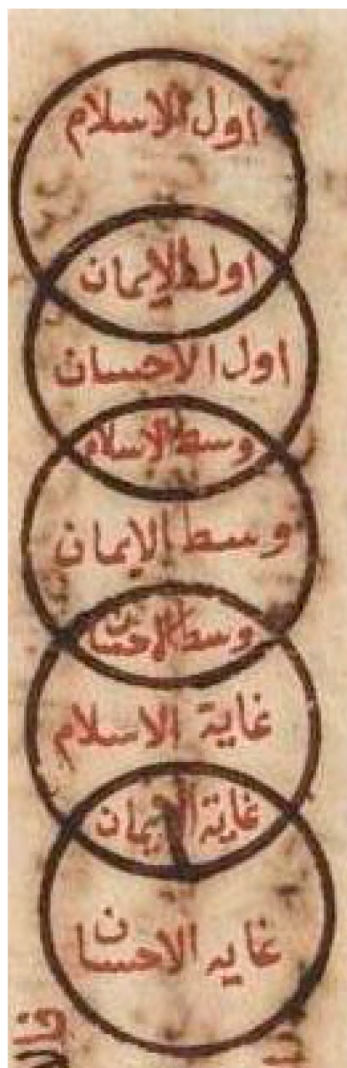 اول الاسلام
اول الايمان
اول الاحسان
وسط الاسلام
وسط الايمان
وسط الاحسان
غاية الاسلام
غاية الايمان
غايه الاحسان